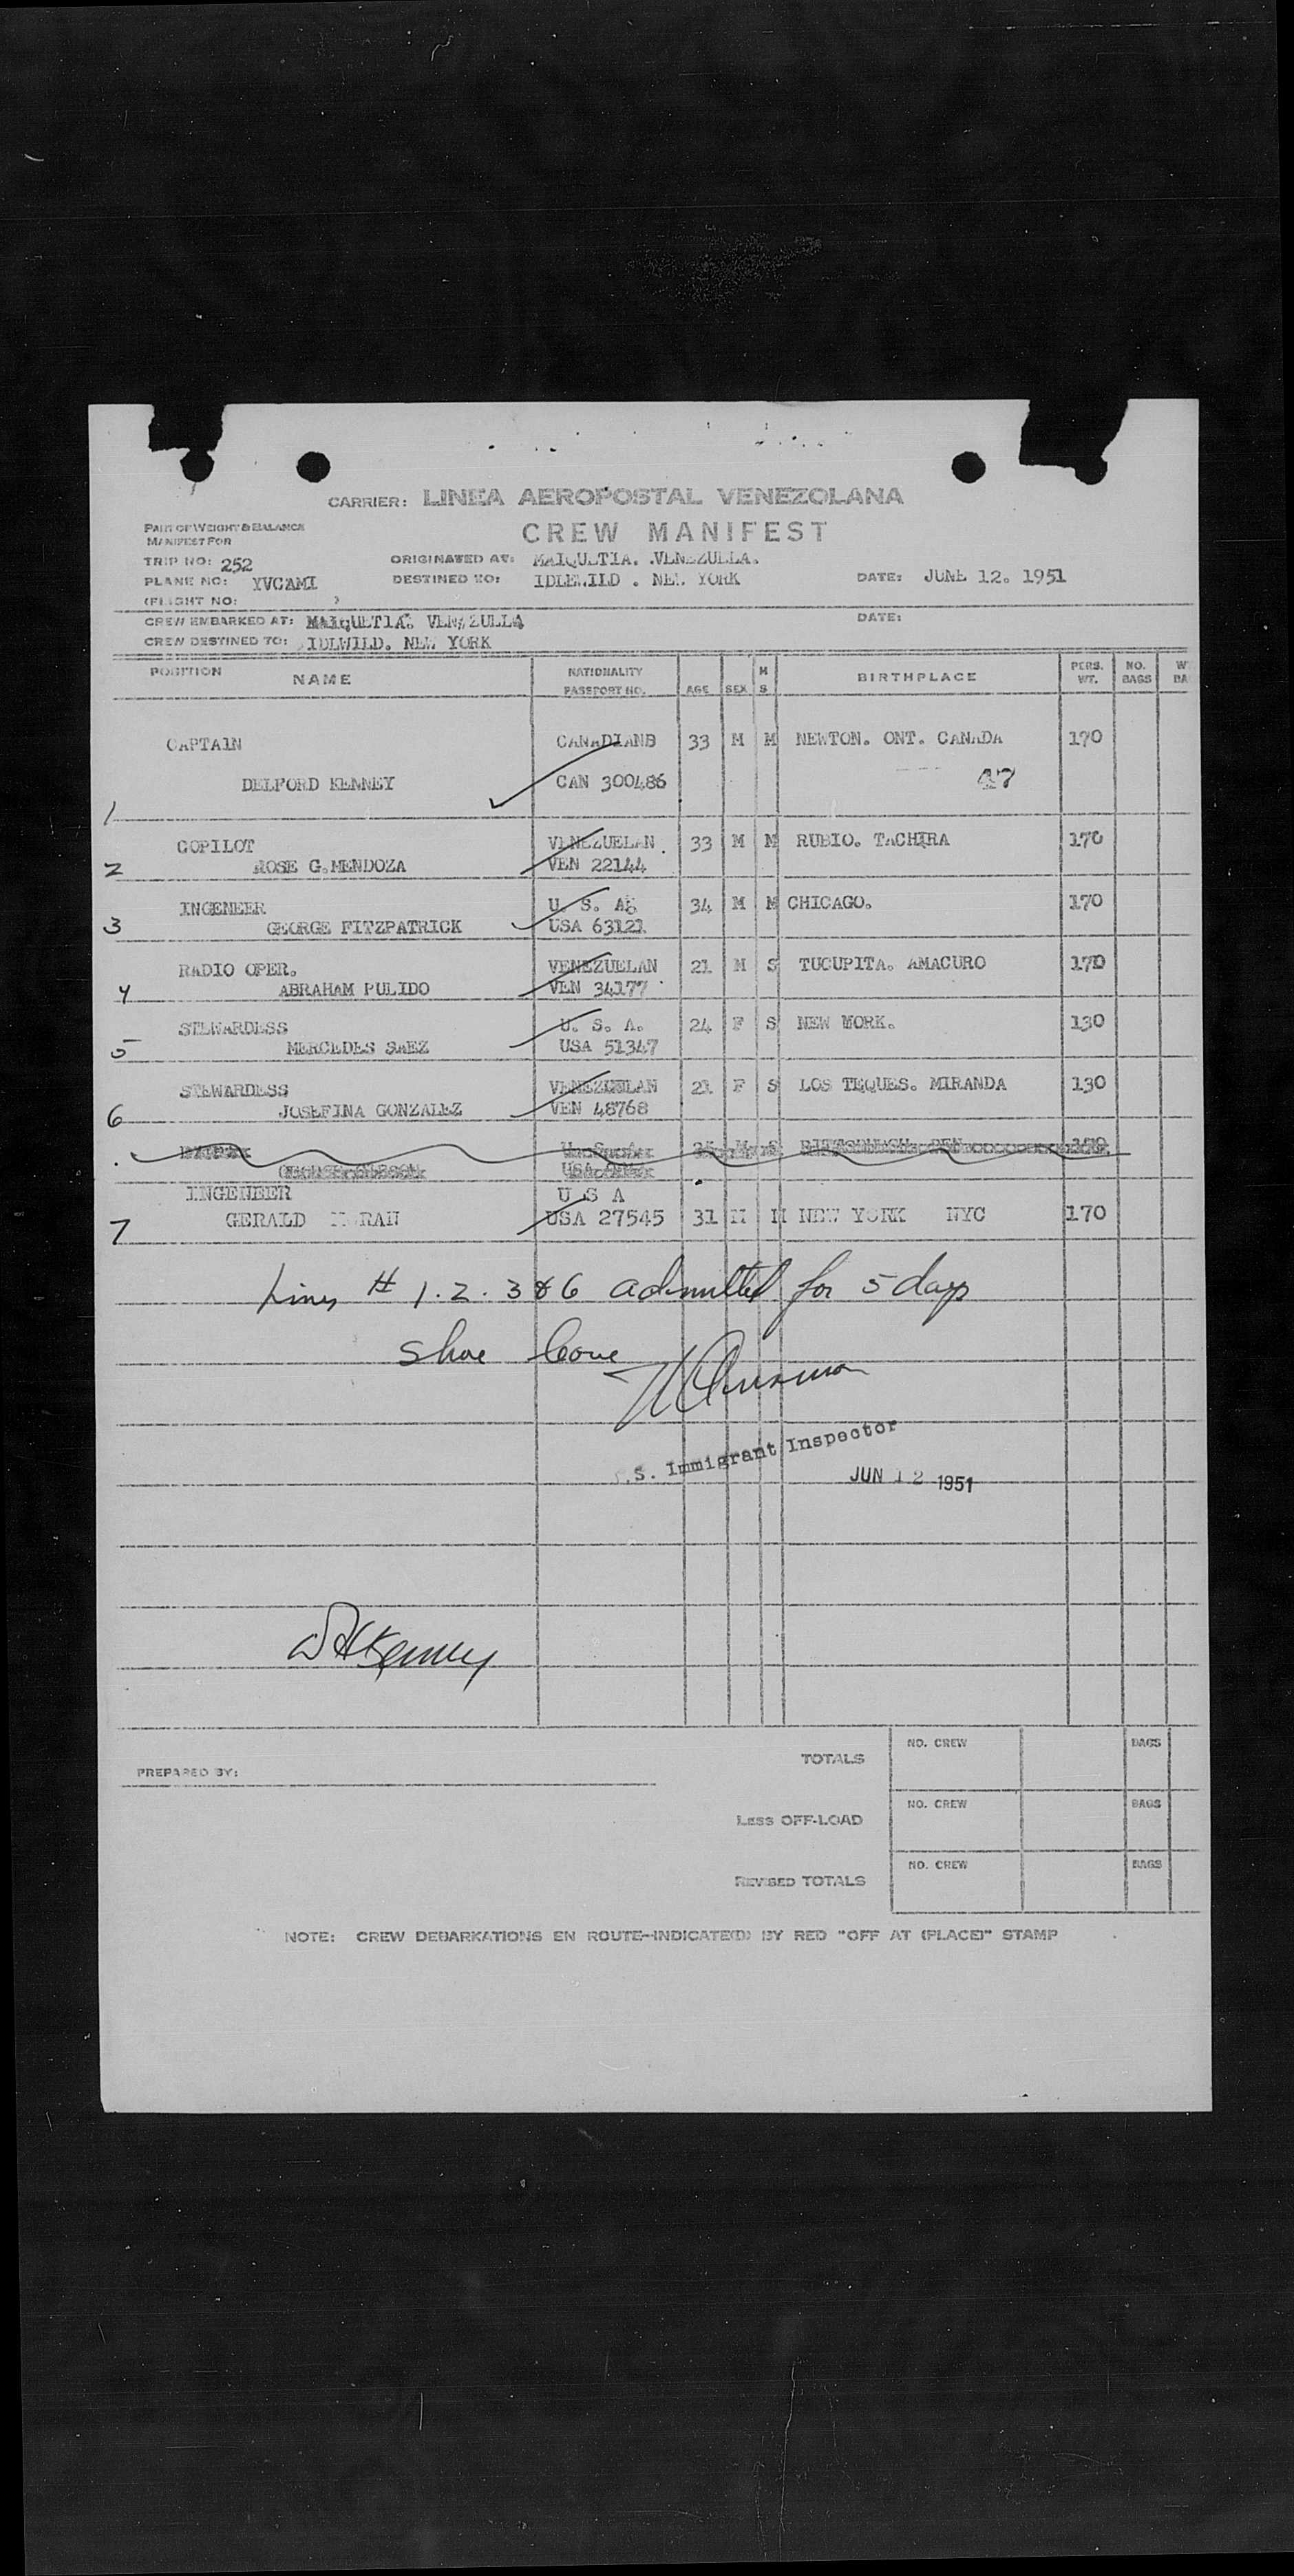 CARRIER: LINEA AEROPOSTAL VENEZOLANA
PART OF WEIGHT & BALANCE
MANIFEST FOR
CREW MANIFEST
TRIP NO: 252 ORIGINATED AT: MAIQUETIA. .VENEZUELA.
PLANE NO: YVCAMI DESTINED TO: IDLEWILD . NEW YORK DATE: JUNE 12. 1951
(FLIGHT NO: )
CREW EMBARKED AT: MAIQUETIA. VENEZUELA DATE:
CREW DESTINED TO: IDLWILD. NEW YORK
POSITION NAME NATIONALITY PASSPORT NO. AGE SEX M S BIRTHPLACE PERS. WT. NO. BAGS W BA
CAPTAIN CANADIAN 33 M M NEWTON. ONT. CANADA 170
DELFORD KENNEY CAN 300486 47
1
COPILOT VENEZUELAN. 33 M M RUBIO. TACHIRA 170
2 G.MENDOZA VEN 22144
INGENEER U. S. A. 34 M M CHICAGO. 170
3 GEORGE FITZPATRICK USA 63121
RADIO OPER. VENEZUELAN 21 M S TUCUPITA. AMACURO 170
4 ABRAHAM PULIDO VEN 34177
STEWARDESS U. S. A. 24 F S NEW YORK. 130
5 MERCEDES SAEZ USA 51347
STEWARDESS VENEZUELAN 21 F S LOS TEQUES. MIRANDA 130
6 JOSEFINA GONZALEZ VEN 48768
INGENEER U S A
7 GERALD USA 27545 31 M M NEW YORK NYC 170
Lines # 1.2.3&6 admitted for 5 days
shore leave
.S. Immigrant Inspector
JUN 12 1951
Kenney
TOTALS NO. CREW BAGS
PREPARED BY:
LESS OFF-LOAD NO. CREW BAGS
REVISED TOTALS NO. CREW BAGS
NOTE: CREW DEBARKATIONS EN ROUTE-INDICATE(D) BY RED "OFF AT (PLACE)" STAMP